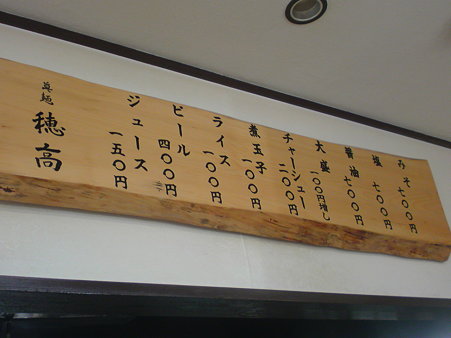 みそ 七〇〇円
塩 七〇〇円
醤油 七〇〇円
大盛 一〇〇円増し
チャーシュー 二〇〇円
煮玉子 一〇〇円
ライス 一〇〇円
ビール 四〇〇円
ジュース 一五〇円
真麺 穂高